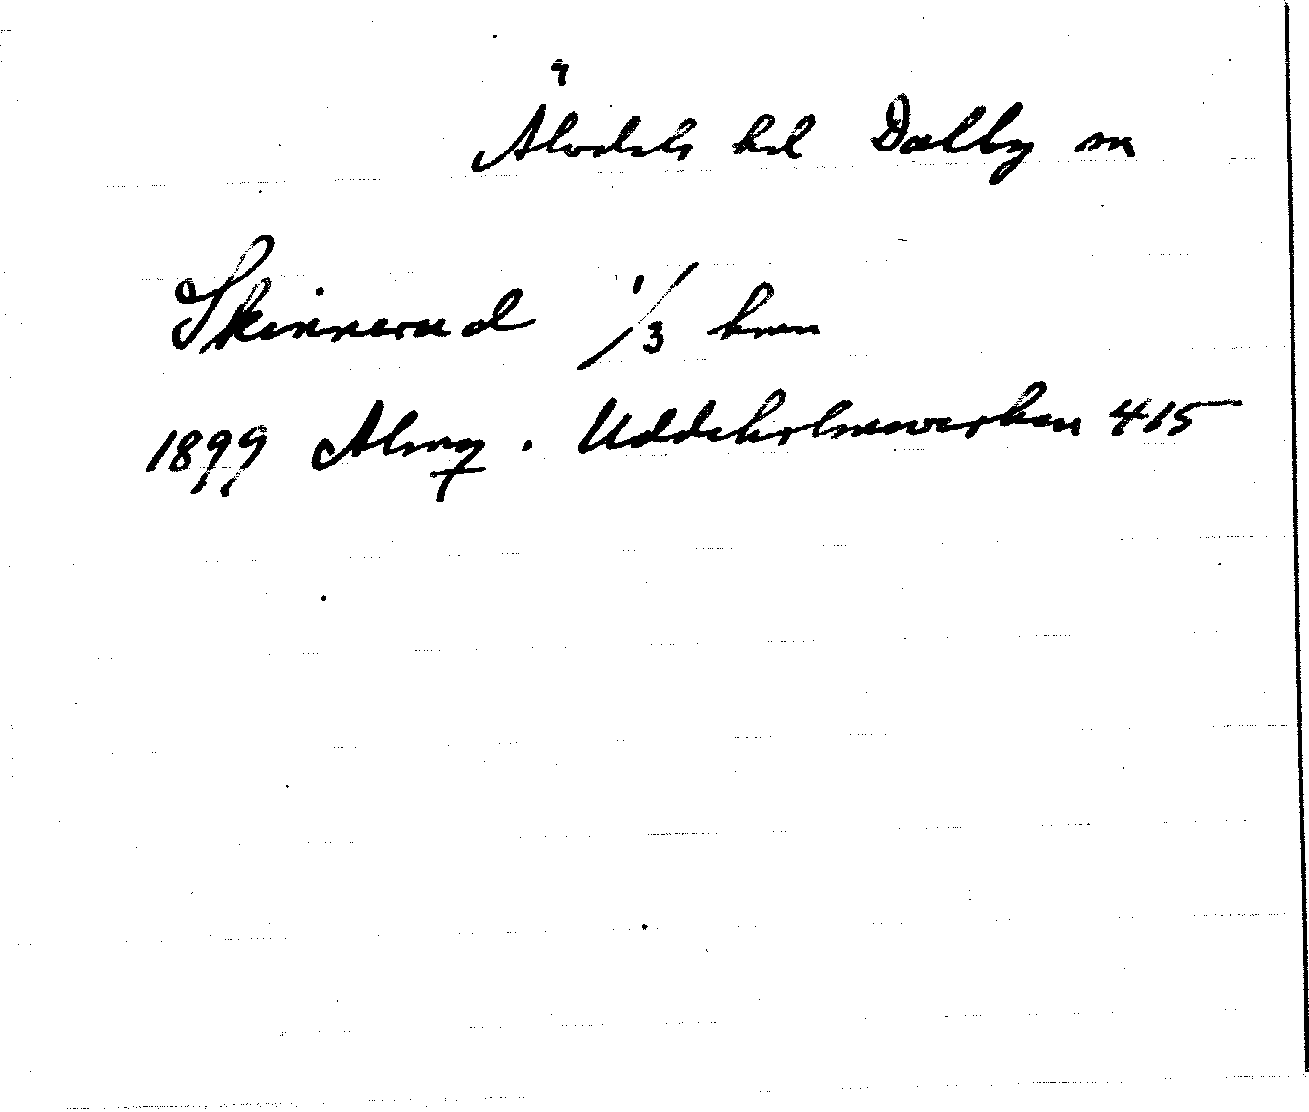 Älvdals hd Dalby sn
Skinnerud 1/3 krn
1899 Almq. Uddeholmsverken 415